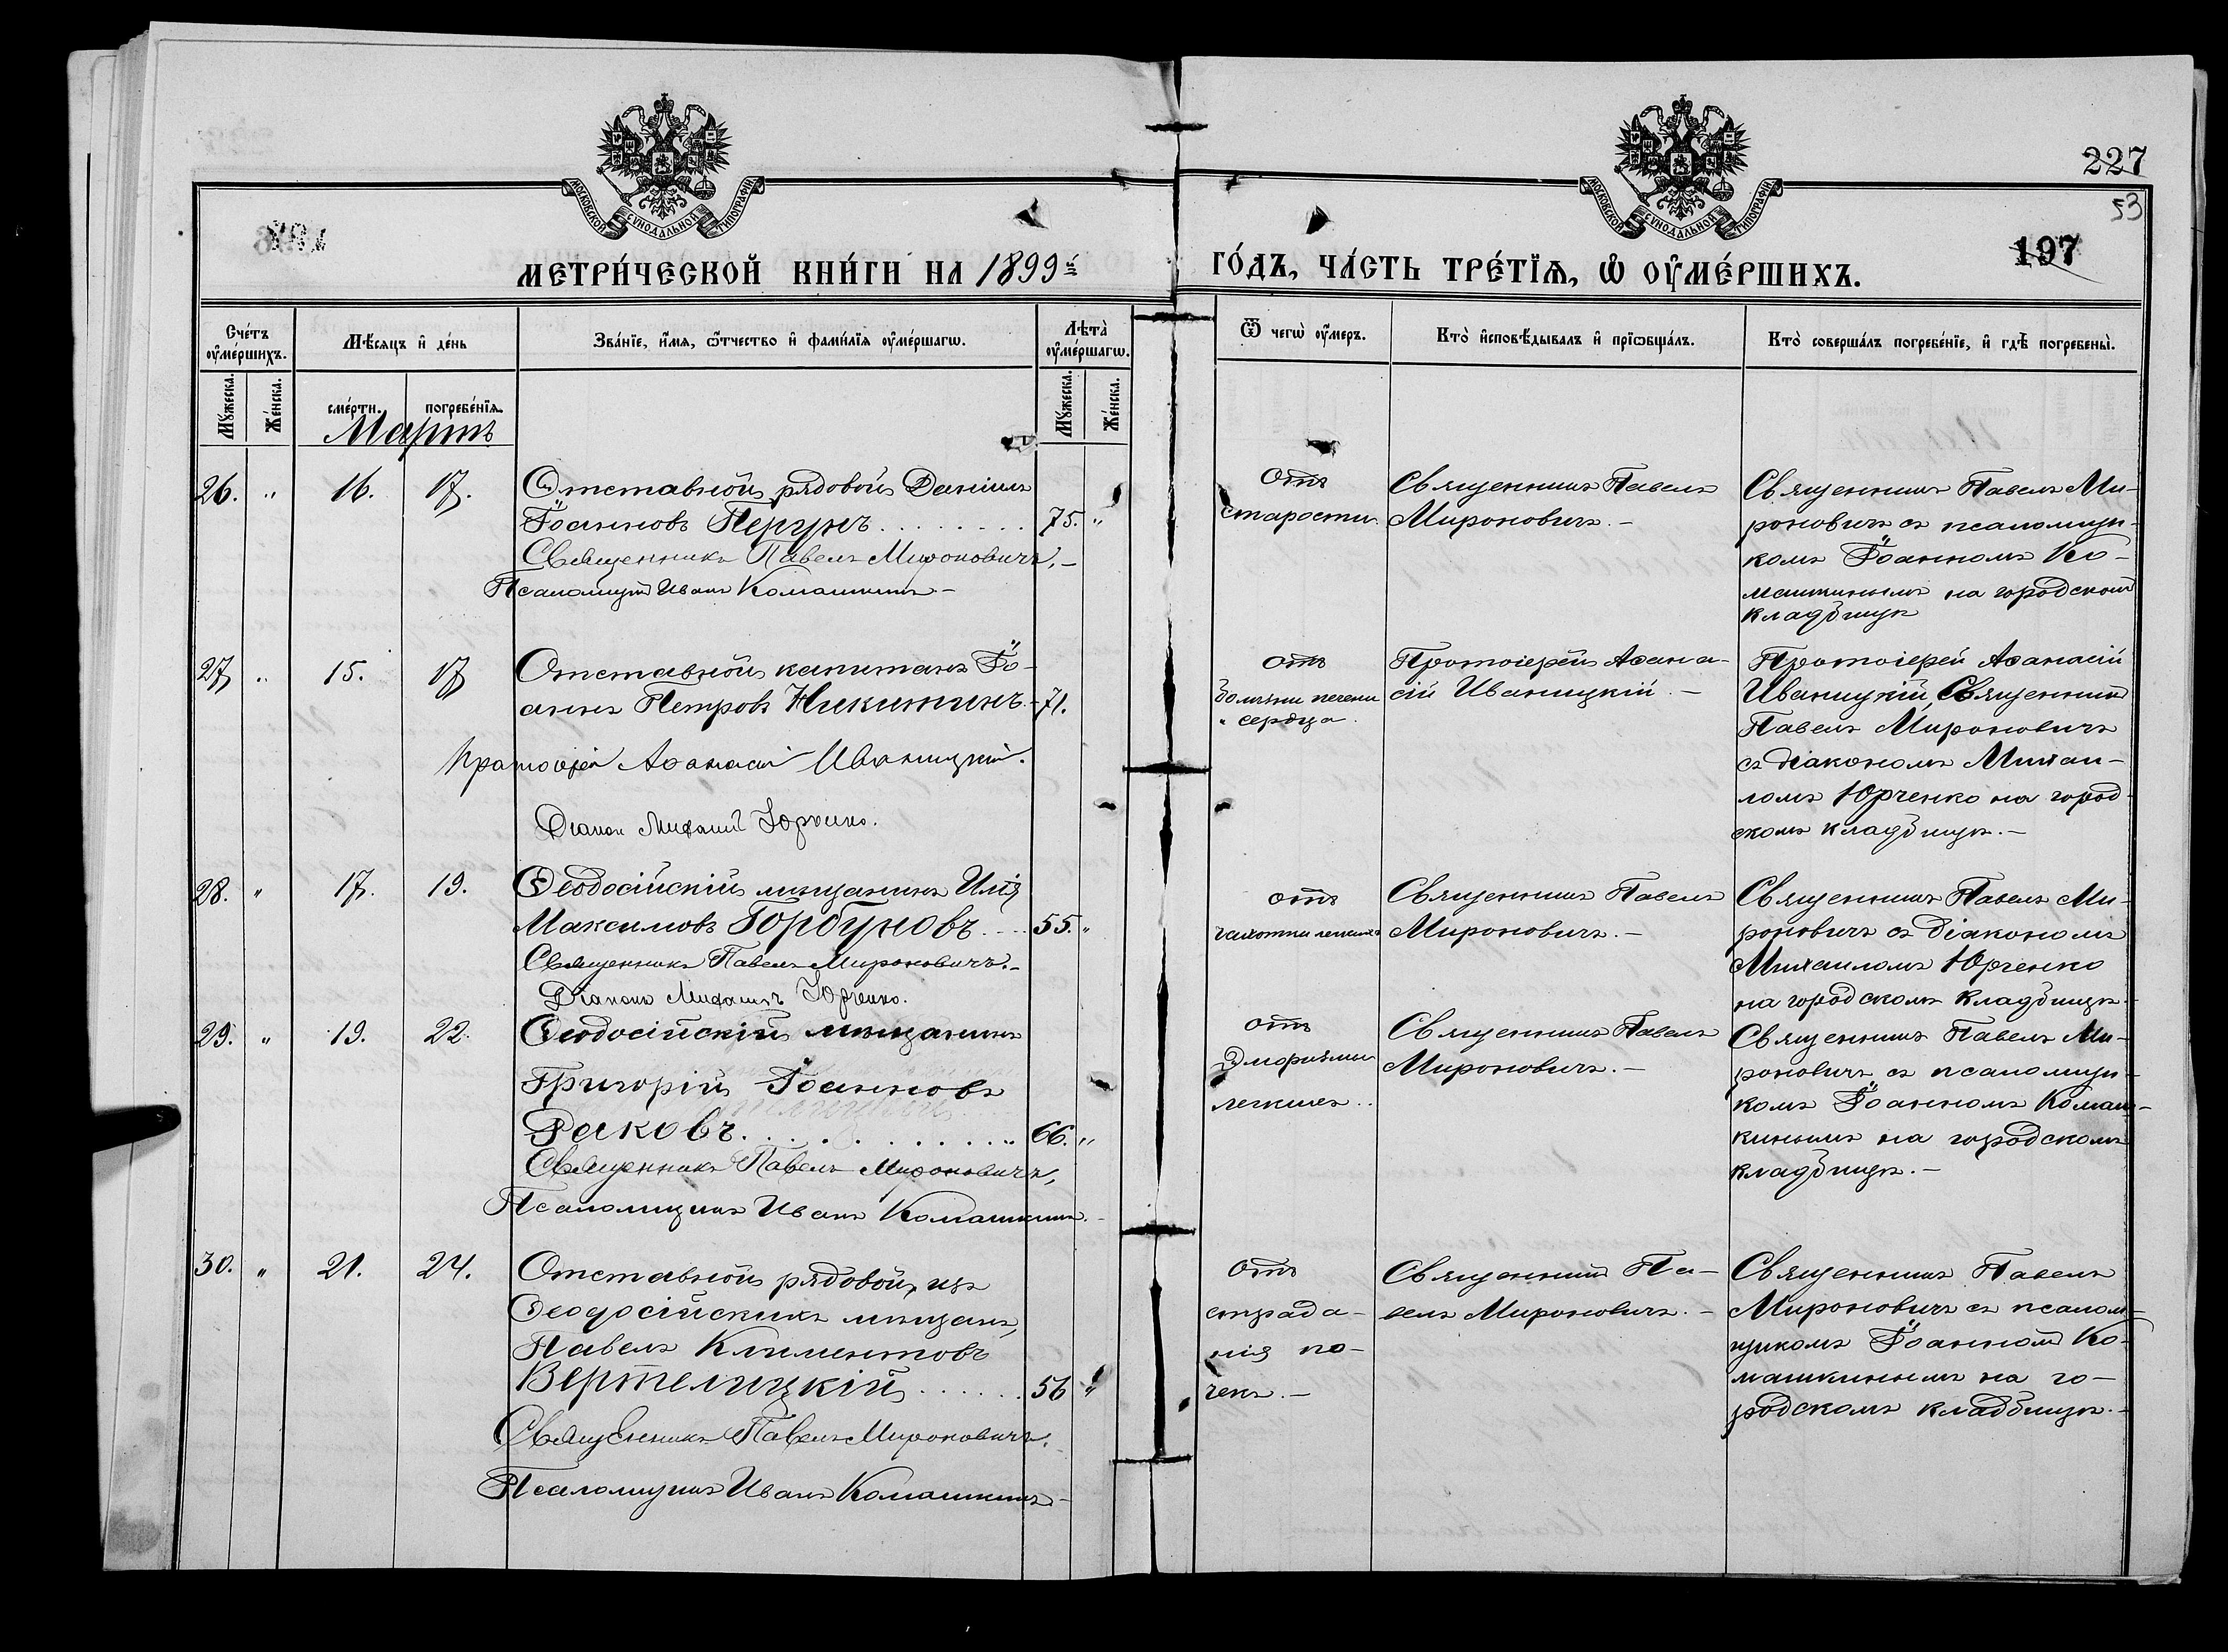 МОСКОВСКОЙ СѴНОДАЛЬНОЙ ТИПОГРАФІИ
МОСКОВСКОЙ СѴНОДАЛЬНОЙ ТИПОГРАФІИ
227
53
197
МЕТРИ́ЧЕСКОЙ КНИ́ГИ НА 1899й
ГО́ДЪ, ЧА́СТЬ ТРЕ́ТЇѦ, Ѡ҆ ОУ҆МЕ́РШИХЪ.
Сче́тъ оу҆ме́ршихъ.
Мѣ́сѧцъ и҆ де́нь
Зва́нїе, и҆́мѧ, ѻ҆́тчество и҆ фами́лїѧ оу҆ме́ршагѡ.
Лѣта̀ оу҆ме́ршагѡ.
Ѿ чегѡ̀ оу҆́меръ.
Кто̀ и҆сповѣ́дывалъ и҆ прїѡбща́лъ.
Кто̀ соверша́лъ погребе́нїе, и҆ гдѣ̀ погребены̀.
Мꙋ́жеска.
Же́нска.
сме́рти.
погребе́нїѧ.
Мꙋ́жеска.
Же́нска.
Мартъ
26. " 16. 17.
Отставной рядовой Даніилъ
Іоанновъ Пергунъ 75. "
Священникъ Павелъ Мироновичъ.-
Псаломщикъ Иванъ Комашкинъ-
Отъ
старости.
Священникъ Павелъ
Мироновичъ.-
Священникъ Павелъ Ми-
роновичъ съ псаломщи-
комъ Іоанномъ Ко-
машкинымъ на городском
кладбищѣ
27 " 15. 17
Отставной капитанъ Іо-
аннъ Петровъ Никитинъ.- 71.
Протоіерей Аѳанасій Иваницкій.
Діакон Михаилъ Юрченко.
отъ
болѣзни печени
и сердца.
Протоіерей Аѳана-
сій Иваницкій.-
Протоіерей Аѳанасій
Иваницкій, Священник
Павелъ Мироновичъ
съ діакономъ Михаи-
ломъ Юрченко на город-
скомъ кладбищѣ.-
28. " 17. 19.
Ѳеодосійскій мѣщанинъ Илія
Максимовъ Горбуновъ 55. "
Священникъ Павелъ Мироновичъ.-
Діаконъ Михаилъ Юрченко.
отъ
чахотки легкихъ
Священникъ Павелъ
Мироновичъ.-
Священникъ Павелъ Ми-
роновичъ съ діакономъ
Михаиломъ Юрченко
на городскомъ кладбищѣ-
29. " 19. 22.
Ѳеодосійскій мѣщанинъ
Григорій Іоанновъ
Раковъ 66. "
Священникъ Павелъ Мироновичъ,
Псаломщикъ Иванъ Комашкинъ.-
отъ
Эмфиземы
легкихъ..
Священникъ Павелъ
Мироновичъ.-
Священникъ Павелъ Ми-
роновичъ съ псаломщи-
комъ Іоанномъ Комаш-
кинымъ на городскомъ
кладбищѣ.-
30. " 21. 24.
Отставной рядовой, изъ
Ѳеодосійскихъ мѣщанъ,
Павелъ Климентовъ
Вертелицкій 56 "
Священникъ Павелъ Мироновичъ.
Псаломщикъ Иванъ Комашкинъ-
отъ
страда-
нія по-
чекъ.-
Священник Па-
велъ Мироновичъ.-
Священникъ Павелъ
Мироновичъ съ псалом-
щикомъ Іоанном Ко-
машкинымъ на го-
родскомъ кладбищѣ.-